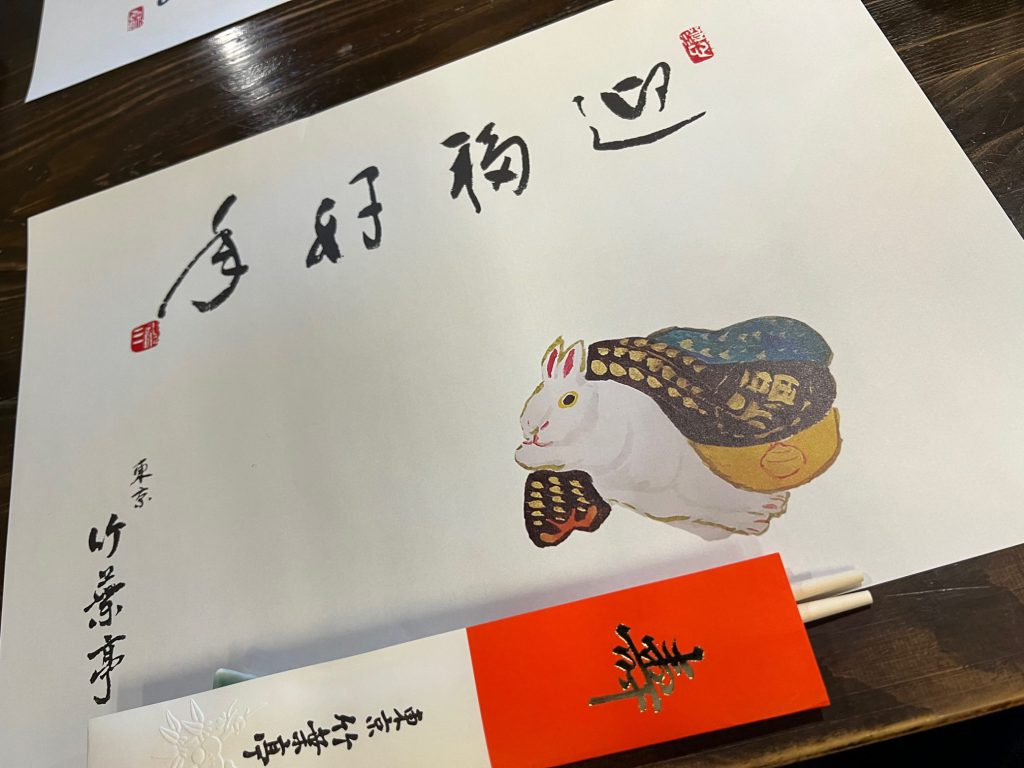 迎福好年
福
東京
竹葉亭
寿
東京竹葉亭